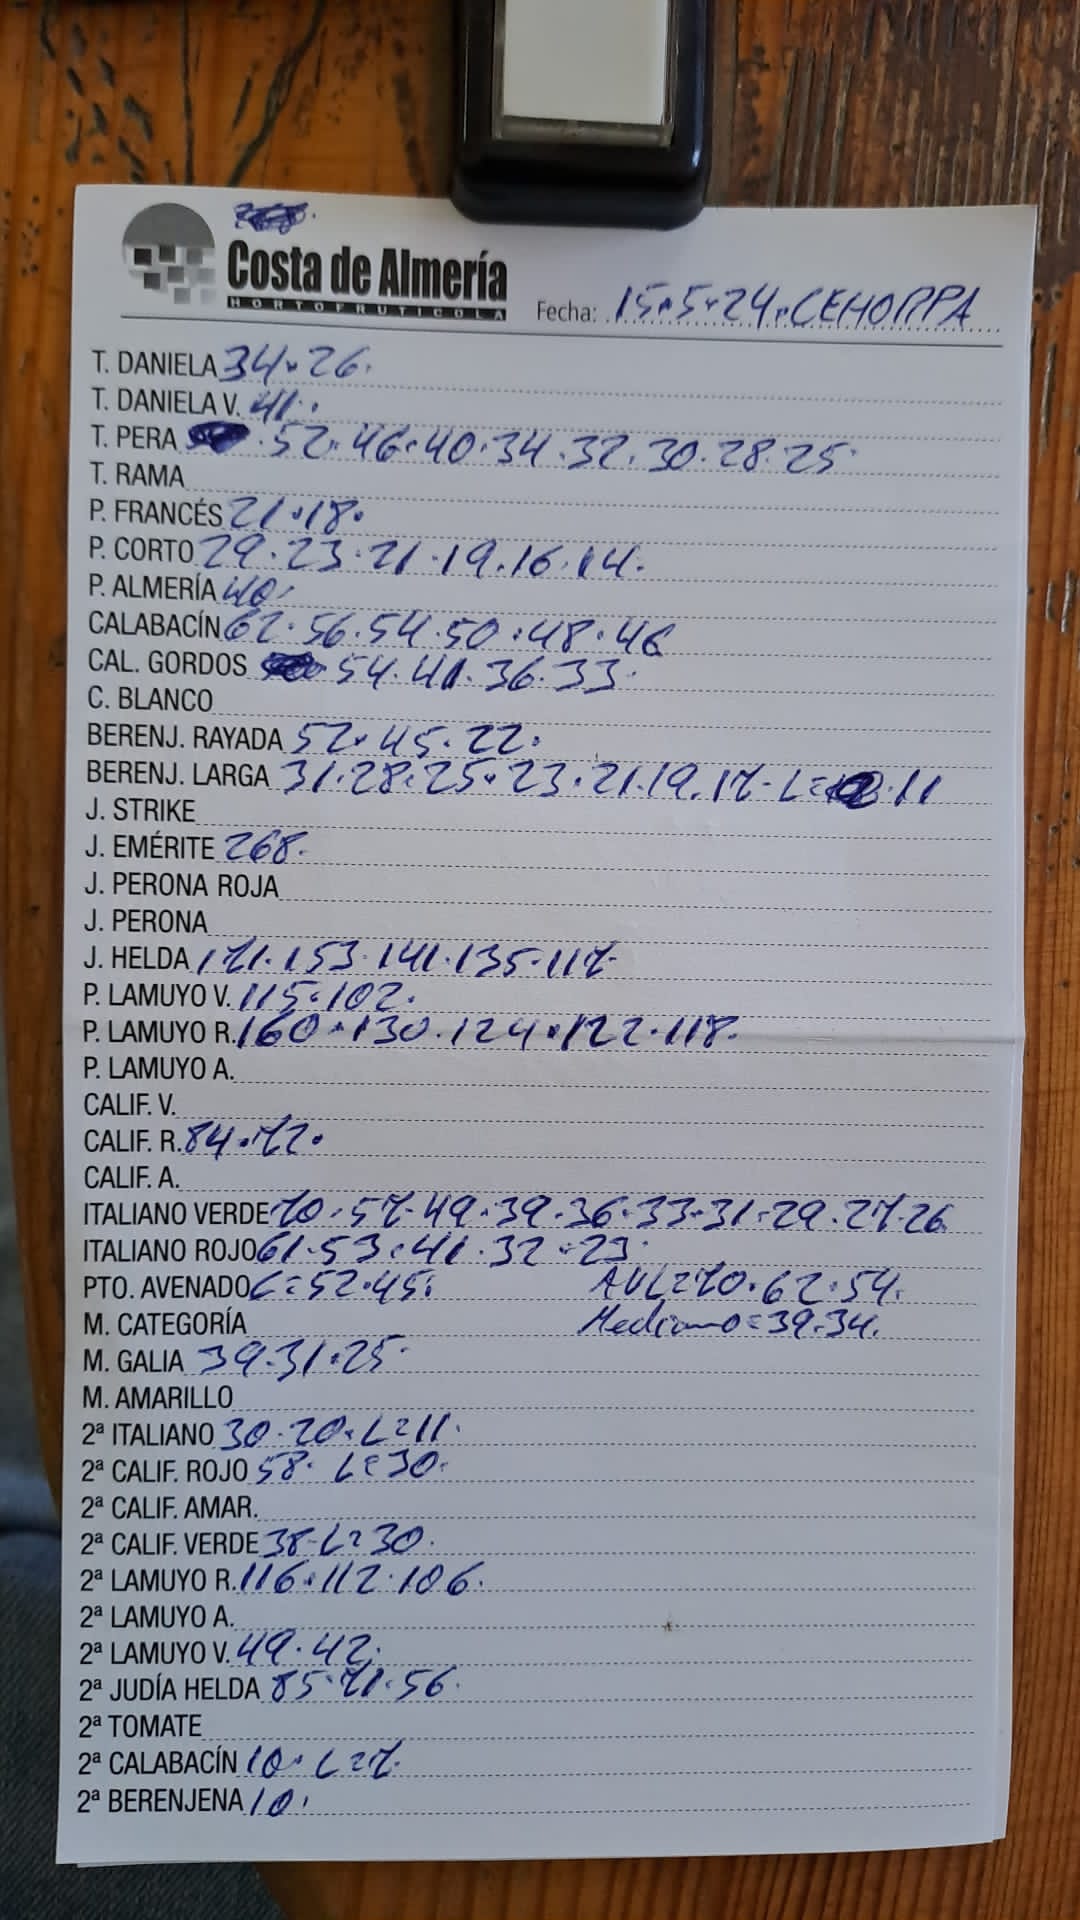 Costa de Almería
HORTOFRUTICOLA
Fecha: 15.5.24.CEHORPA
T. DANIELA 34.26.
T. DANIELA V. 41.
T. PERA .52.46.40.34.32.30.28.25.
T. RAMA
P. FRANCÉS 21.18.
P. CORTO 29.23.21.19.16.14.
P. ALMERÍA 40.
CALABACÍN 62.56.54.50.48.46
CAL. GORDOS 54.41.36.33.
C. BLANCO
BERENJ. RAYADA 52.45.22.
BERENJ. LARGA 31.28.25.23.21.19.17-L= .11
J. STRIKE
J. EMÉRITE 268.
J. PERONA ROJA
J. PERONA
J. HELDA 171.153.141.135.117.
P. LAMUYO V. 115.102.
P. LAMUYO R. 160.130.124.122.118.
P. LAMUYO A.
CALIF. V.
CALIF. R. 84.72.
CALIF. A.
ITALIANO VERDE 70.57.49.39.36.33.31.29.27.26
ITALIANO ROJO 61.53.41.32.23.
PTO. AVENADO L=52.45. AVL=70.62.54.
M. CATEGORÍA Mediano=39.34.
M. GALIA 39.31.25.
M. AMARILLO
2ª ITALIANO 30.20.L=11.
2ª CALIF. ROJO 58. L=30.
2ª CALIF. AMAR.
2ª CALIF. VERDE 38-L=30.
2ª LAMUYO R. 116.112.106.
2ª LAMUYO A.
2ª LAMUYO V. 49.42.
2ª JUDÍA HELDA 85.71.56.
2ª TOMATE
2ª CALABACÍN 10. L=7.
2ª BERENJENA 10.